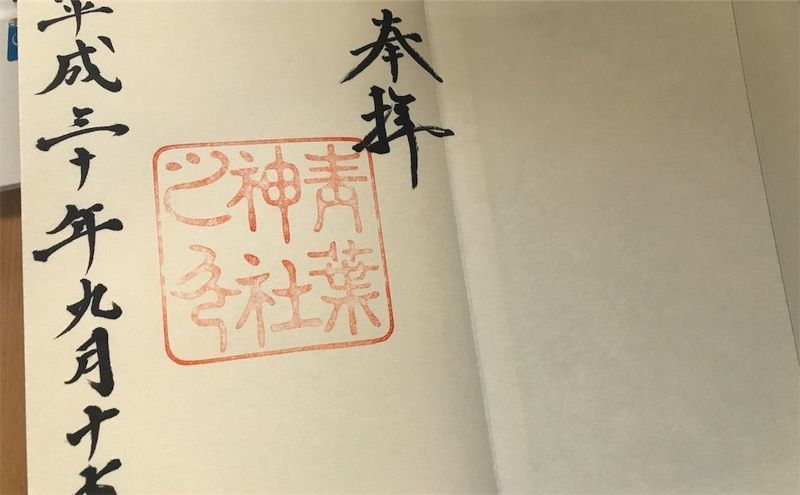 奉拝
青葉
神社
之印
平成三十年九月十